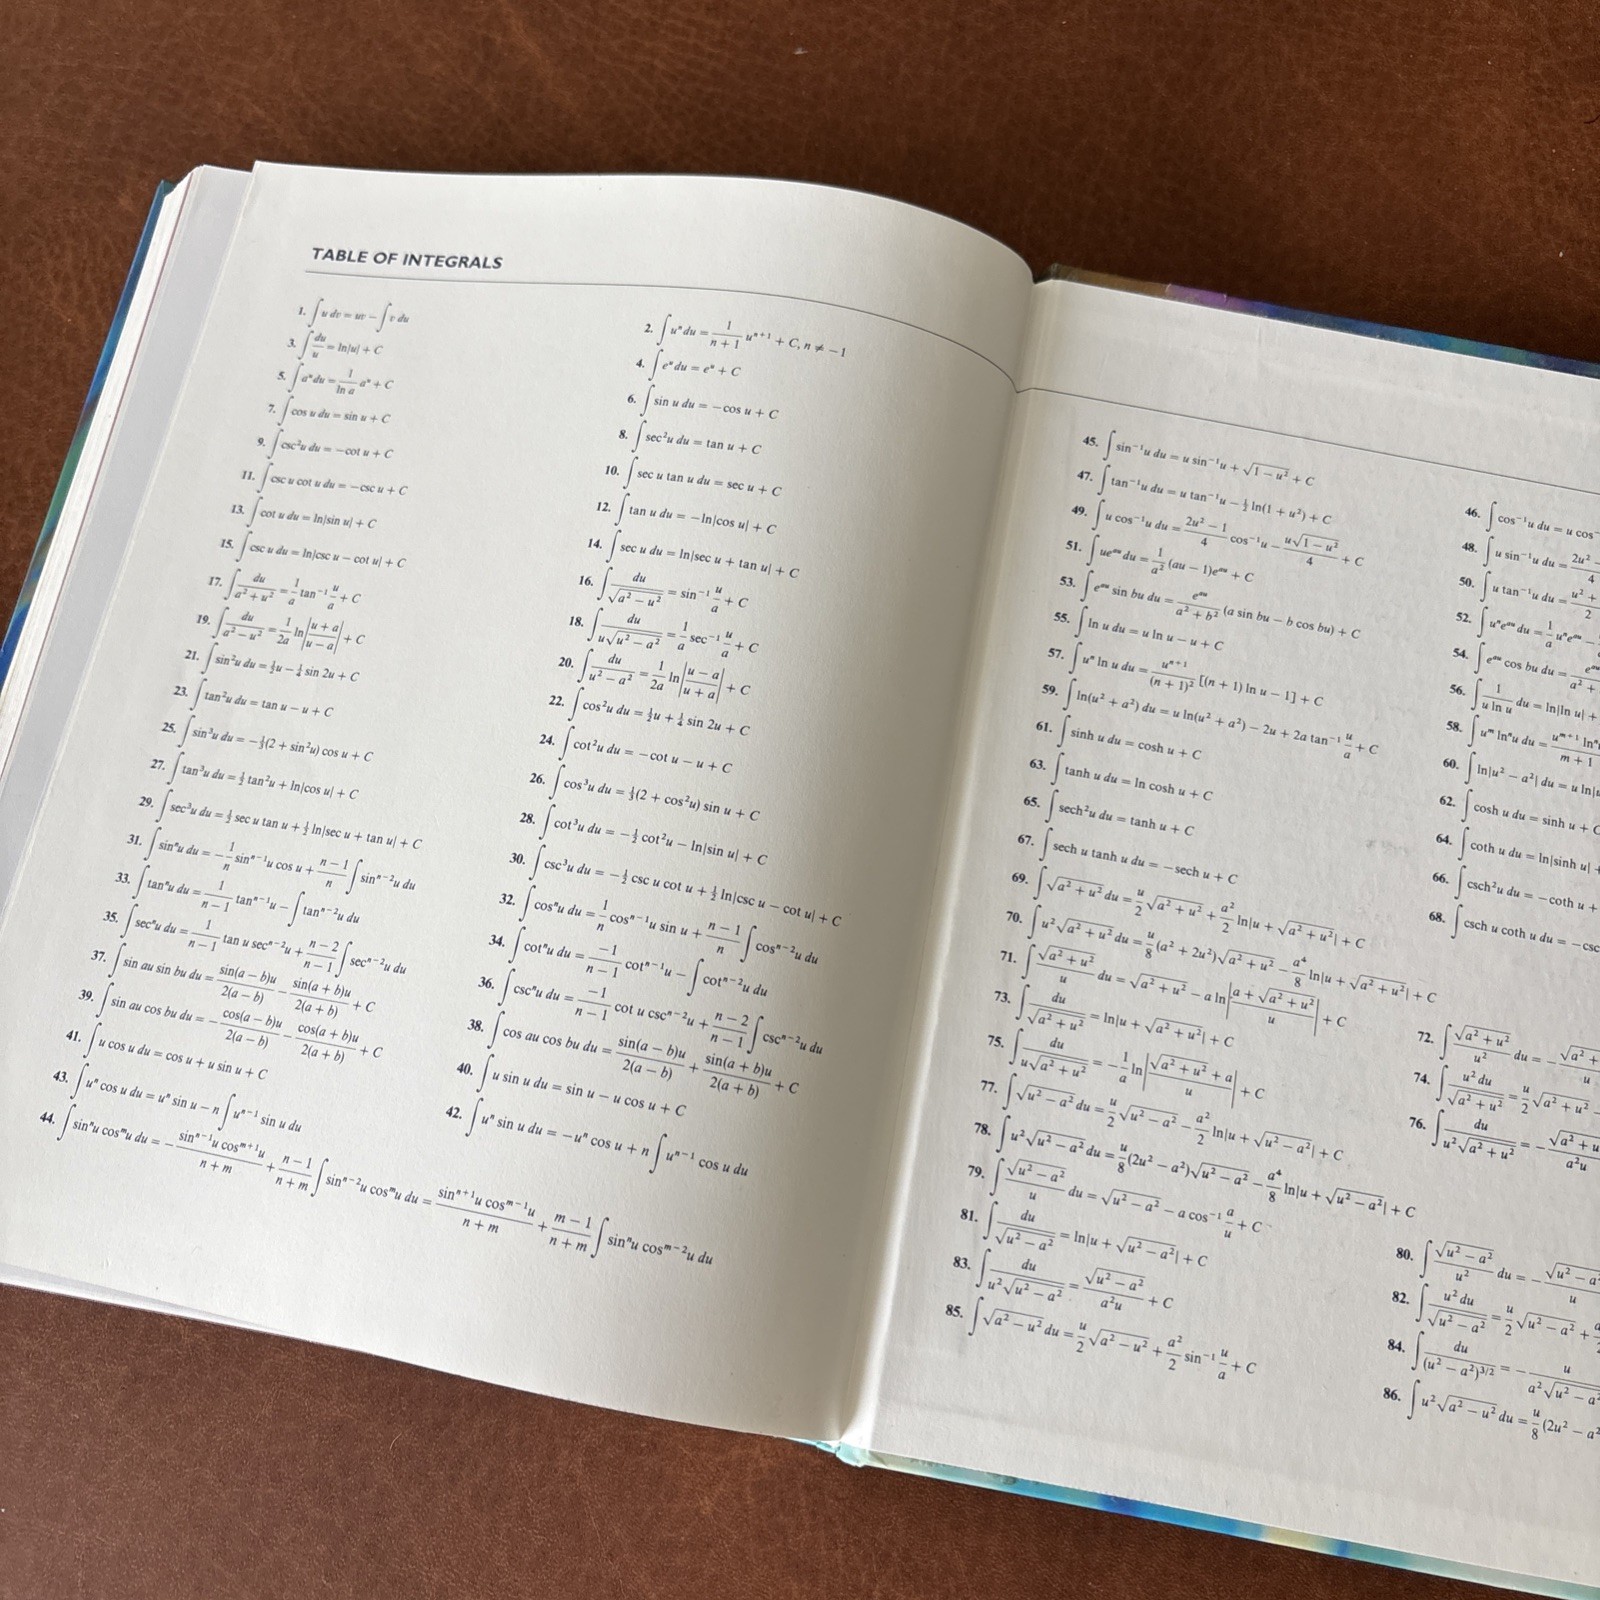 TABLE OF INTEGRALS
1. ∫ u dv = uv − ∫ v du
2. ∫ uⁿ du = 1/(n + 1) uⁿ⁺¹ + C, n ≠ −1
3. ∫ du/u = ln|u| + C
4. ∫ eᵘ du = eᵘ + C
5. ∫ aᵘ du = 1/(ln a) aᵘ + C
6. ∫ sin u du = −cos u + C
7. ∫ cos u du = sin u + C
8. ∫ sec²u du = tan u + C
9. ∫ csc²u du = −cot u + C
10. ∫ sec u tan u du = sec u + C
11. ∫ csc u cot u du = −csc u + C
12. ∫ tan u du = −ln|cos u| + C
13. ∫ cot u du = ln|sin u| + C
14. ∫ sec u du = ln|sec u + tan u| + C
15. ∫ csc u du = ln|csc u − cot u| + C
16. ∫ du/√(a² − u²) = sin⁻¹ u/a + C
17. ∫ du/(a² + u²) = 1/a tan⁻¹ u/a + C
18. ∫ du/(u√(u² − a²)) = 1/a sec⁻¹ u/a + C
19. ∫ du/(a² − u²) = 1/(2a) ln|(u + a)/(u − a)| + C
20. ∫ du/(u² − a²) = 1/(2a) ln|(u − a)/(u + a)| + C
21. ∫ sin²u du = ½u − ¼ sin 2u + C
22. ∫ cos²u du = ½u + ¼ sin 2u + C
23. ∫ tan²u du = tan u − u + C
24. ∫ cot²u du = −cot u − u + C
25. ∫ sin³u du = −⅓(2 + sin²u) cos u + C
26. ∫ cos³u du = ⅓(2 + cos²u) sin u + C
27. ∫ tan³u du = ½ tan²u + ln|cos u| + C
28. ∫ cot³u du = −½ cot²u − ln|sin u| + C
29. ∫ sec³u du = ½ sec u tan u + ½ ln|sec u + tan u| + C
30. ∫ csc³u du = −½ csc u cot u + ½ ln|csc u − cot u| + C
31. ∫ sinⁿu du = −1/n sinⁿ⁻¹u cos u + (n − 1)/n ∫ sinⁿ⁻²u du
32. ∫ cosⁿu du = 1/n cosⁿ⁻¹u sin u + (n − 1)/n ∫ cosⁿ⁻²u du
33. ∫ tanⁿu du = 1/(n − 1) tanⁿ⁻¹u − ∫ tanⁿ⁻²u du
34. ∫ cotⁿu du = −1/(n − 1) cotⁿ⁻¹u − ∫ cotⁿ⁻²u du
35. ∫ secⁿu du = 1/(n − 1) tan u secⁿ⁻²u + (n − 2)/(n − 1) ∫ secⁿ⁻²u du
36. ∫ cscⁿu du = −1/(n − 1) cot u cscⁿ⁻²u + (n − 2)/(n − 1) ∫ cscⁿ⁻²u du
37. ∫ sin au sin bu du = sin(a − b)u/2(a − b) − sin(a + b)u/2(a + b) + C
38. ∫ cos au cos bu du = sin(a − b)u/2(a − b) + sin(a + b)u/2(a + b) + C
39. ∫ sin au cos bu du = −cos(a − b)u/2(a − b) − cos(a + b)u/2(a + b) + C
40. ∫ u sin u du = sin u − u cos u + C
41. ∫ u cos u du = cos u + u sin u + C
42. ∫ uⁿ sin u du = −uⁿ cos u + n ∫ uⁿ⁻¹ cos u du
43. ∫ uⁿ cos u du = uⁿ sin u − n ∫ uⁿ⁻¹ sin u du
44. ∫ sinⁿu cosᵐu du = −sinⁿ⁻¹u cosᵐ⁺¹u/(n + m) + (n − 1)/(n + m) ∫ sinⁿ⁻²u cosᵐu du = sinⁿ⁺¹u cosᵐ⁻¹u/(n + m) + (m − 1)/(n + m) ∫ sinⁿu cosᵐ⁻²u du
45. ∫ sin⁻¹u du = u sin⁻¹u + √(1 − u²) + C
46. ∫ cos⁻¹u du = u cos⁻
47. ∫ tan⁻¹u du = u tan⁻¹u − ½ ln(1 + u²) + C
48. ∫ u sin⁻¹u du = 2u² −/4
49. ∫ u cos⁻¹u du = (2u² − 1)/4 cos⁻¹u − u√(1 − u²)/4 + C
50. ∫ u tan⁻¹u du = u² +/2
51. ∫ ueᵃᵘ du = 1/a² (au − 1)eᵃᵘ + C
52. ∫ uⁿeᵃᵘ du = 1/a uⁿeᵃᵘ −
53. ∫ eᵃᵘ sin bu du = eᵃᵘ/(a² + b²) (a sin bu − b cos bu) + C
54. ∫ eᵃᵘ cos bu du = eᵃᵘ/a² +
55. ∫ ln u du = u ln u − u + C
56. ∫ 1/(u ln u) du = ln|ln u| +
57. ∫ uⁿ ln u du = uⁿ⁺¹/(n + 1)² [(n + 1) ln u − 1] + C
58. ∫ uᵐ lnⁿu du = uᵐ⁺¹ lnⁿ/m + 1
59. ∫ ln(u² + a²) du = u ln(u² + a²) − 2u + 2a tan⁻¹ u/a + C
60. ∫ ln|u² − a²| du = u ln|
61. ∫ sinh u du = cosh u + C
62. ∫ cosh u du = sinh u + C
63. ∫ tanh u du = ln cosh u + C
64. ∫ coth u du = ln|sinh u| +
65. ∫ sech²u du = tanh u + C
66. ∫ csch²u du = −coth u +
67. ∫ sech u tanh u du = −sech u + C
68. ∫ csch u coth u du = −csc
69. ∫ √(a² + u²) du = u/2 √(a² + u²) + a²/2 ln|u + √(a² + u²)| + C
70. ∫ u²√(a² + u²) du = u/8 (a² + 2u²)√(a² + u²) − a⁴/8 ln|u + √(a² + u²)| + C
71. ∫ √(a² + u²)/u du = √(a² + u²) − a ln|(a + √(a² + u²))/u| + C
72. ∫ √(a² + u²)/u² du = −√(a² +/u
73. ∫ du/√(a² + u²) = ln|u + √(a² + u²)| + C
74. ∫ u² du/√(a² + u²) = u/2 √(a² + u²) −
75. ∫ du/(u√(a² + u²)) = −1/a ln|(√(a² + u²) + a)/u| + C
76. ∫ du/(u²√(a² + u²)) = −√(a² + u/a²u
77. ∫ √(u² − a²) du = u/2 √(u² − a²) − a²/2 ln|u + √(u² − a²)| + C
78. ∫ u²√(u² − a²) du = u/8 (2u² − a²)√(u² − a²) − a⁴/8 ln|u + √(u² − a²)| + C
79. ∫ √(u² − a²)/u du = √(u² − a²) − a cos⁻¹ a/u + C
80. ∫ √(u² − a²)/u² du = −√(u² − a²/u
81. ∫ du/√(u² − a²) = ln|u + √(u² − a²)| + C
82. ∫ u² du/√(u² − a²) = u/2 √(u² − a²) +
83. ∫ du/(u²√(u² − a²)) = √(u² − a²)/(a²u) + C
84. ∫ du/(u² − a²)³ᐟ² = −u/a²√(u² − a²
85. ∫ √(a² − u²) du = u/2 √(a² − u²) + a²/2 sin⁻¹ u/a + C
86. ∫ u²√(a² − u²) du = u/8 (2u² − a²